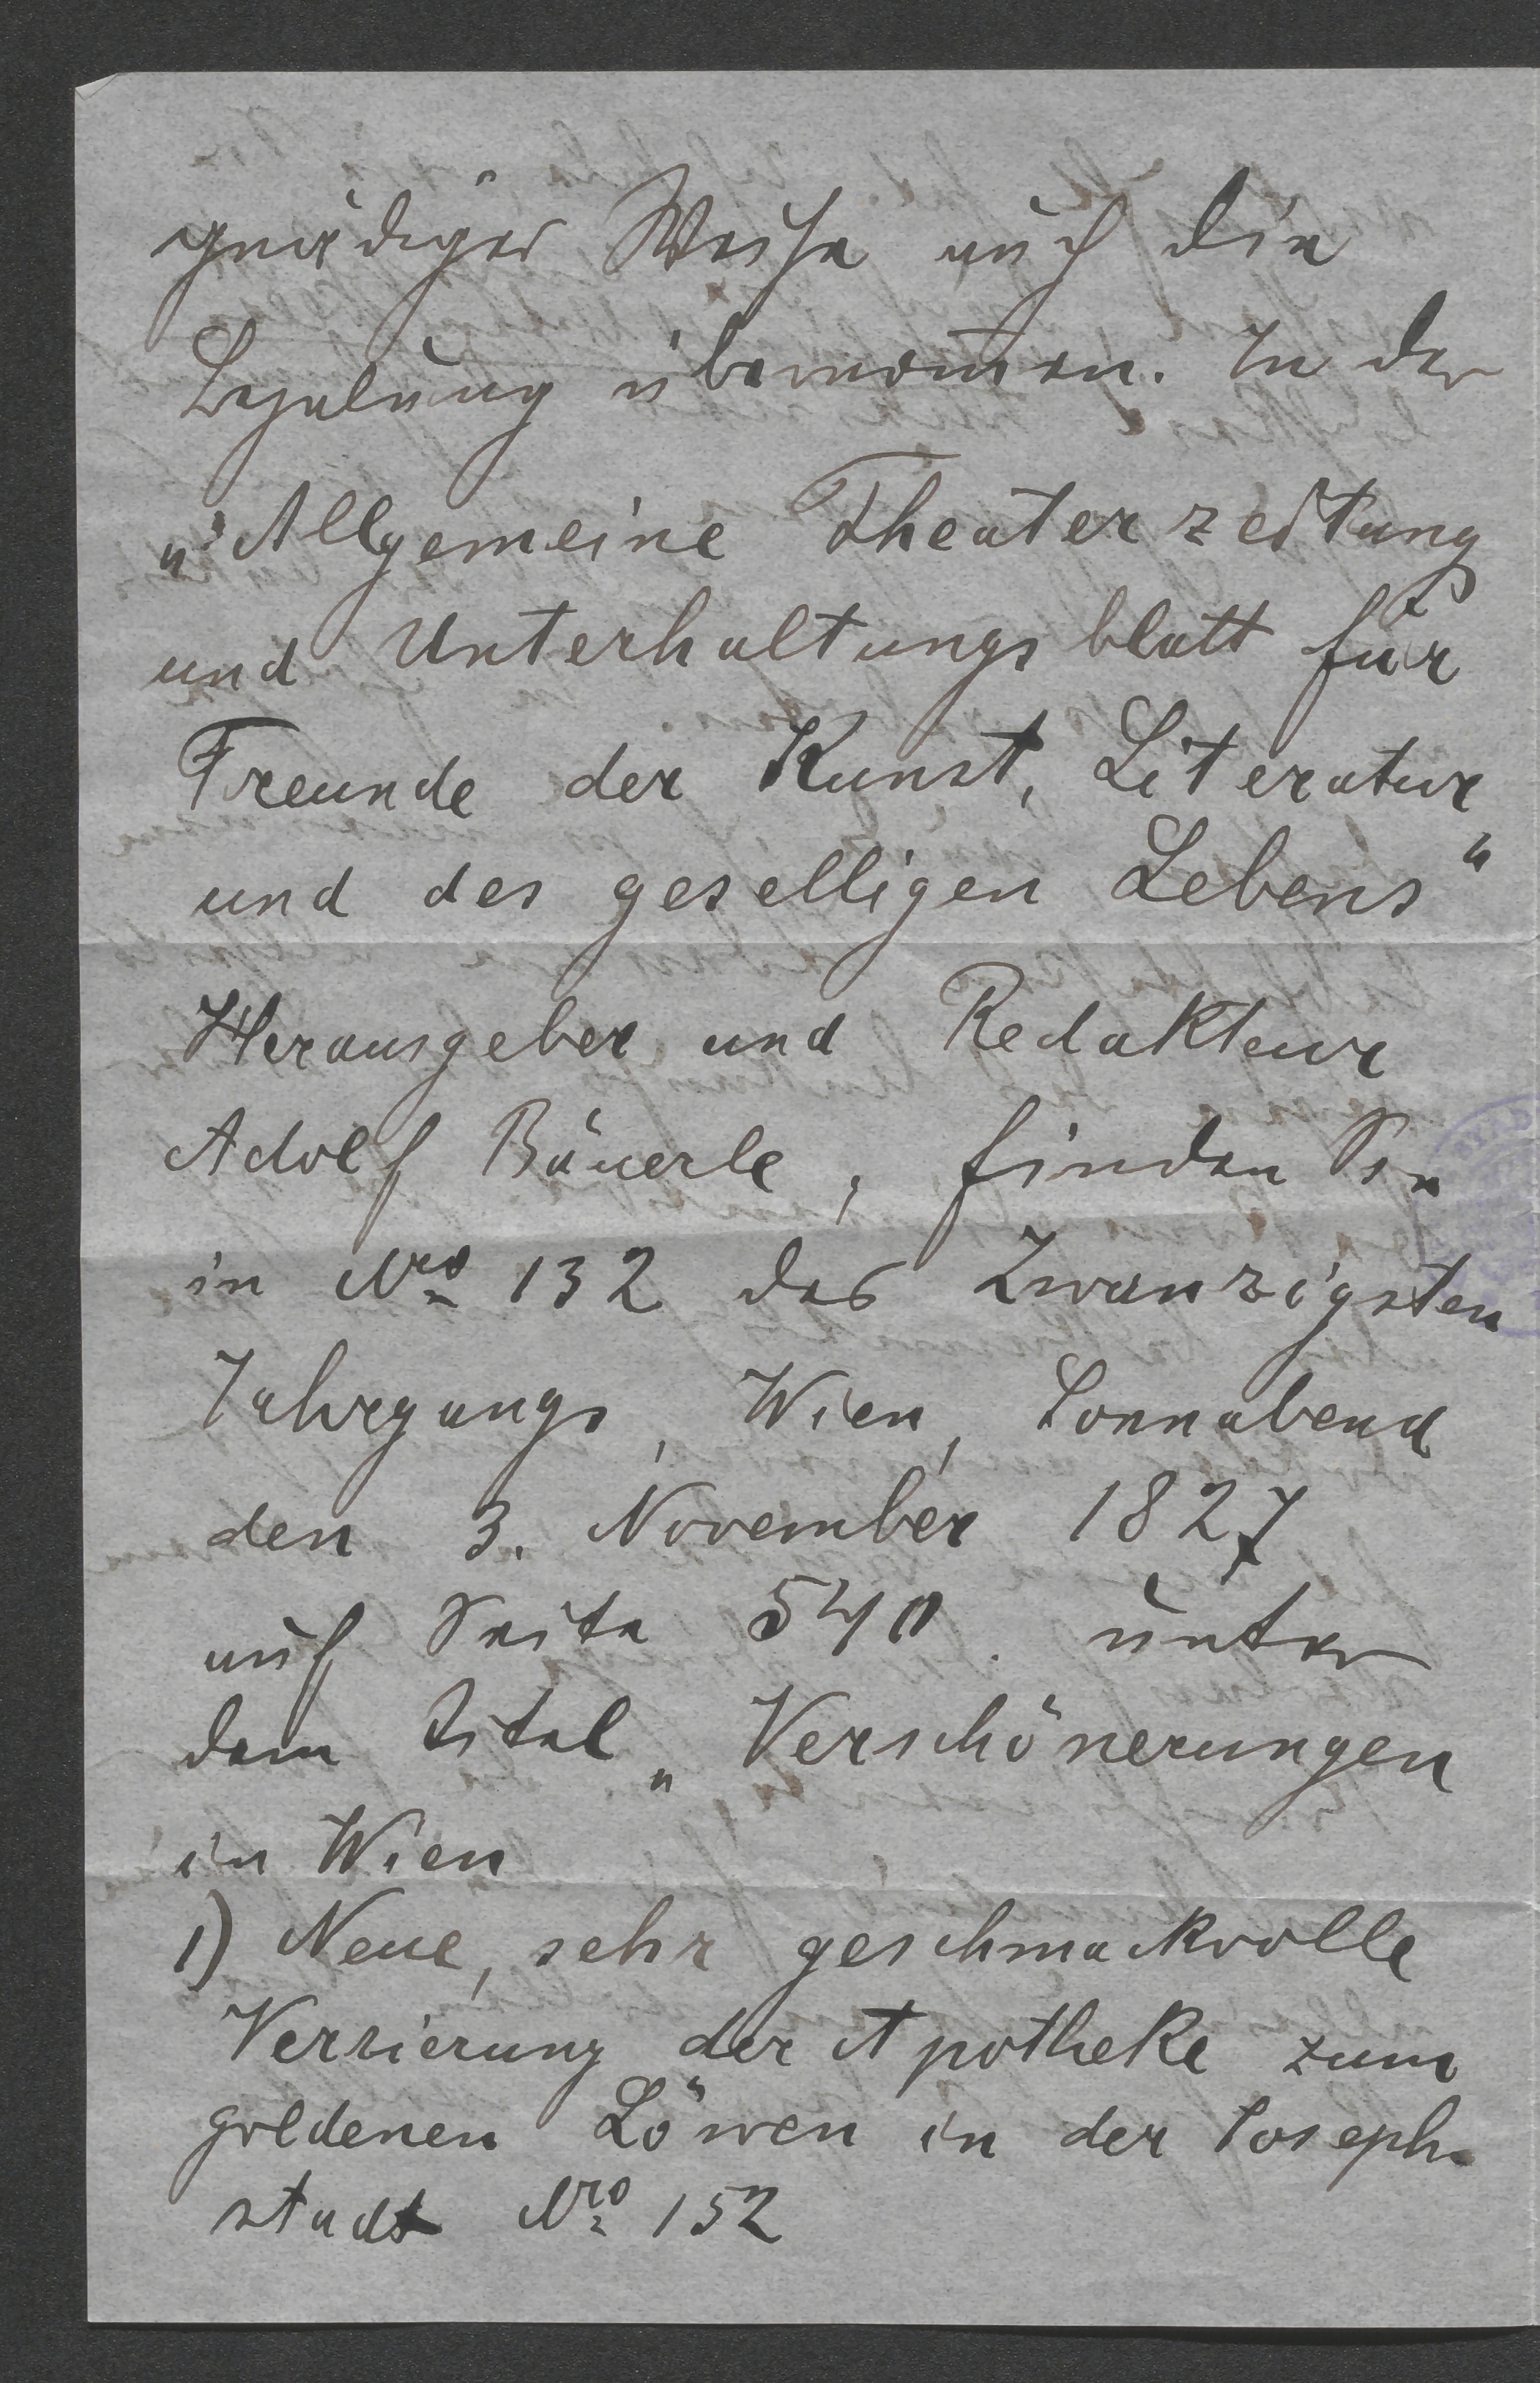 gnädiger Weise auch die
Bezalung übernom̅en. In der
„Allgemeine Theaterzeitung
und Unterhaltungsblatt für
Freunde der Kunst, Literatur
und des geselligen Lebens“
Herausgeber und Redakteur
Adolf Bäuerle, finden Sie
in Nro 132 des Zwanzigsten
Jahrgangs, Wien, Sonnabend
den 3. November 1827
auf Seite 540. unter
dem Titel „Verschönerungen
in Wien
1) Neue, sehr geschmackvolle
Verzierung der Apotheke zum
goldenen Löwen in der Joseph-
stadt Nro 152